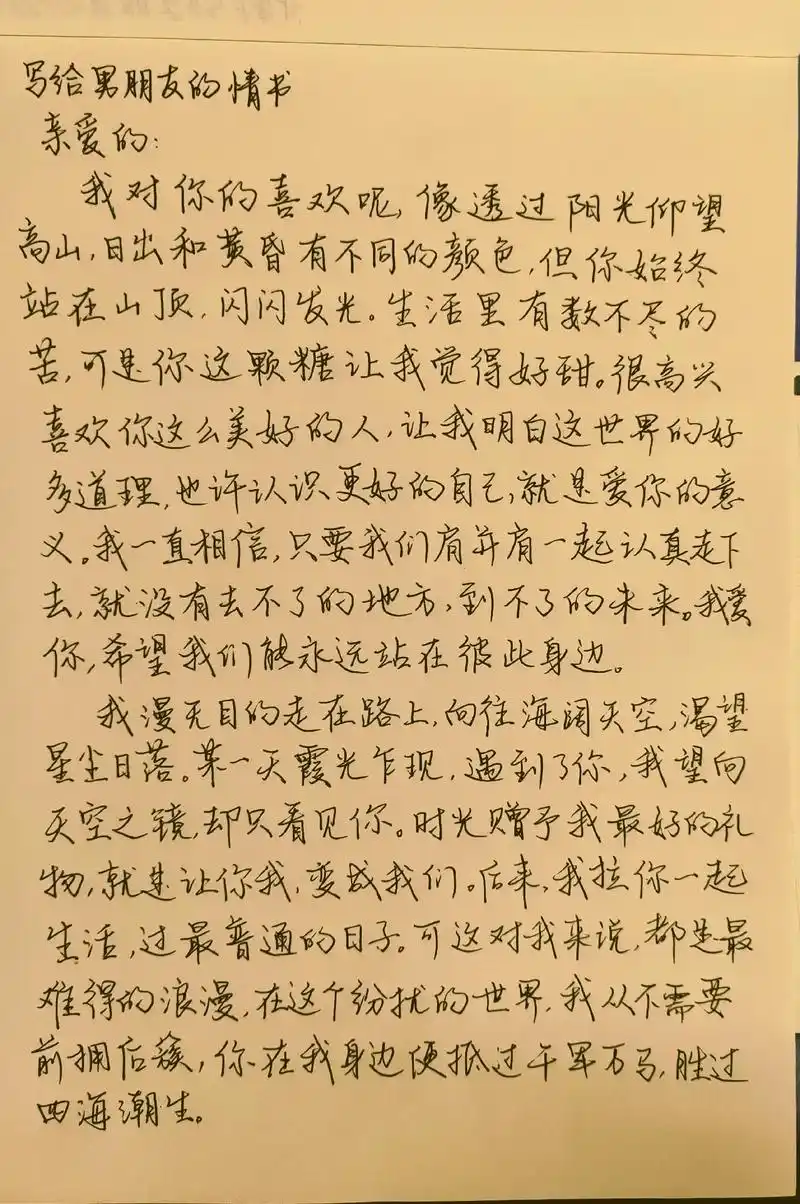 写给男朋友的情书
亲爱的:
我对你的喜欢呢,像透过阳光仰望
高山,日出和黄昏有不同的颜色,但你始终
站在山顶,闪闪发光。生活里有数不尽的
苦,可是你这颗糖让我觉得好甜。很高兴
喜欢你这么美好的人,让我明白这世界的好
多道理,也许认识更好的自己,就是爱你的意
义。我一直相信,只要我们肩并肩一起认真走下
去,就没有去不了的地方,到不了的未来。我爱
你,希望我们能永远站在彼此身边。
我漫无目的走在路上,向往海阔天空,渴望
星尘日落。某一天霞光乍现,遇到了你,我望向
天空之镜,却只看见你。时光赠予我最好的礼
物,就是让你我,变成我们。后来,我拉你一起
生活,过最普通的日子。可这对我来说,都是最
难得的浪漫,在这个纷扰的世界,我从不需要
前拥后簇,你在我身边便抵过千军万马,胜过
四海潮生。